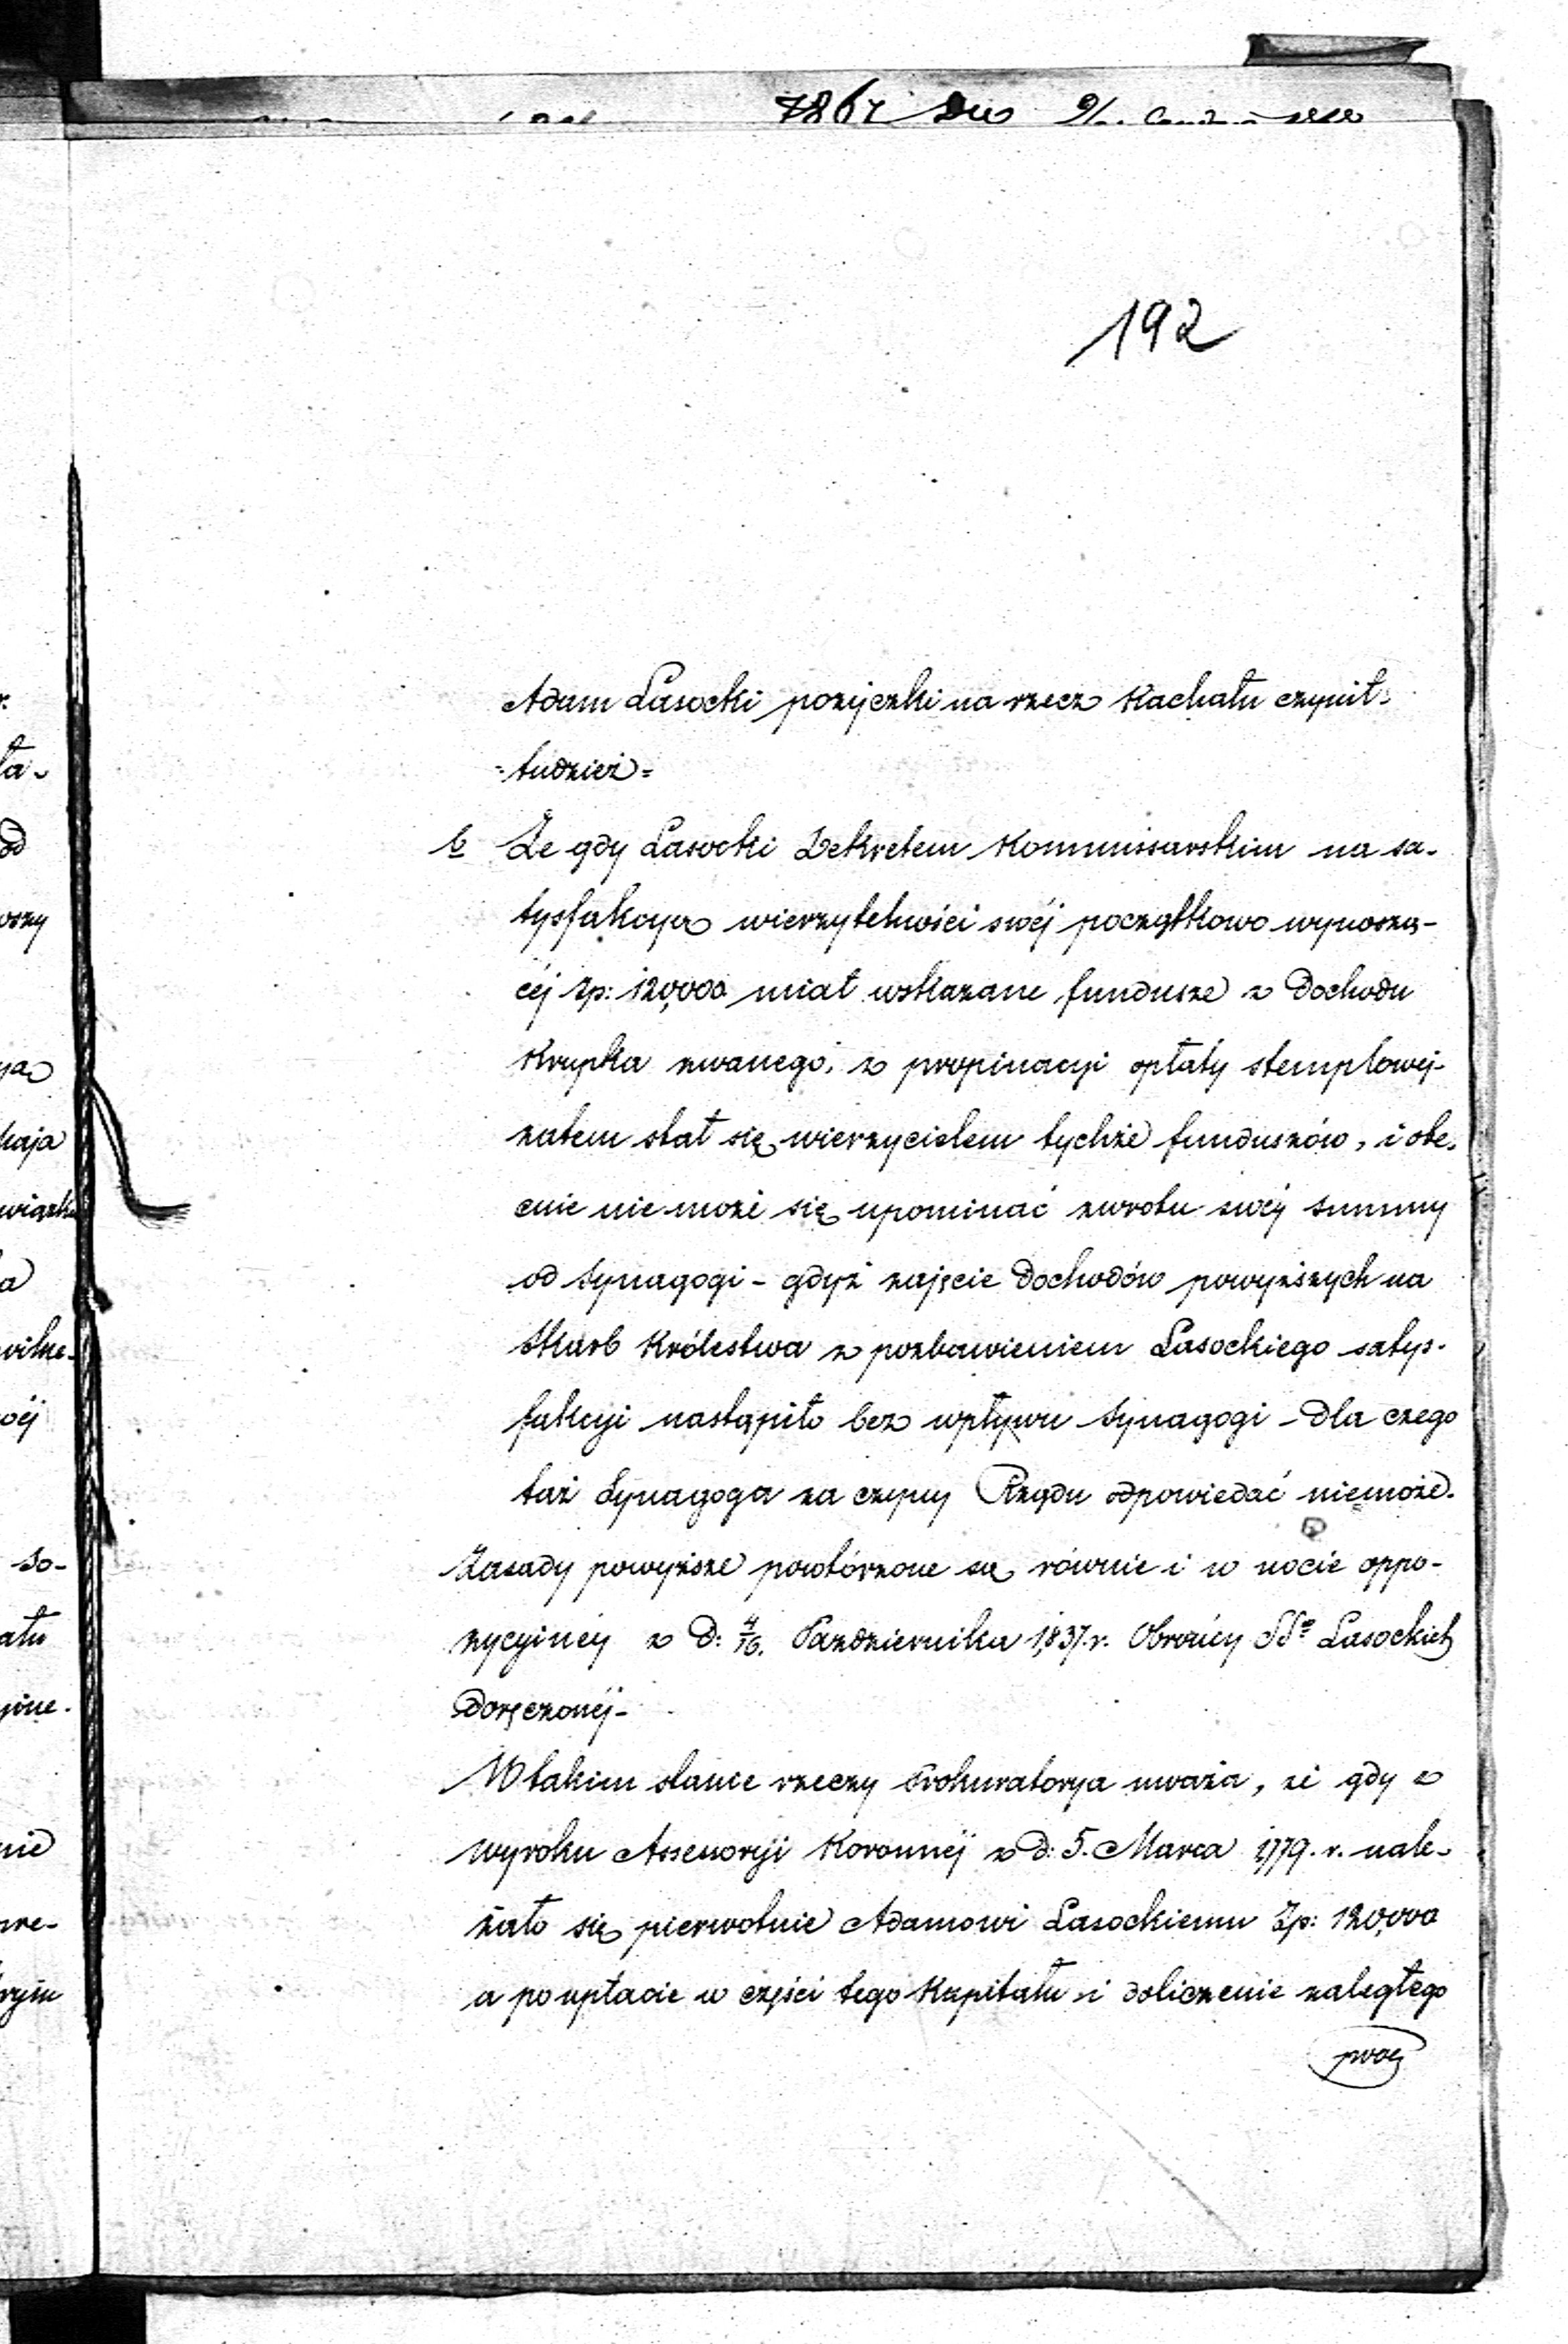 192
Adam Lasocki pożyczki na rzecz Kachału czynił.
=tudzież=
b Że gdy Lasocki Dekretem Kommissarskim na sa-
tysfakcyą wierzytelności swéj początkowo wynoszą-
céj Zp: 120,000 miał wskazane fundusze z Dochodu
Krupka zwanego, z propinacyi opłaty stemplowej-
zatem stał się wierzycielem tychże funduszów, i obe-
cnie nie może się upominać zwrotu swéj summy
od Synagogi - gdyż zajęcie Dochodów powyższych na
Skarb Królestwa z pozbawieniem Lasockiego satys-
fakcyi nastąpiło bez wpływu Synagogi - Dla czego
taż Synagoga za czyny Rządu odpowiedać niemoże.
Zasady powyższe powtórzone są równie i w nocie oppo-
zycyinéy z D: 4/16. Października 1837. r. Obrońcy SSów Lasockich
Doręczonéj-
W takim stanie rzeczy Prokuratorya uważa, że gdy z
wyroku Assessoryi Koronnéj z D: 5. Marca 1779. r. nale-
żało się pierwotnie Adamowi Lasockiemu Zp: 120,000
a po upłacie w części tego Kapitału i doliczenie zaległego